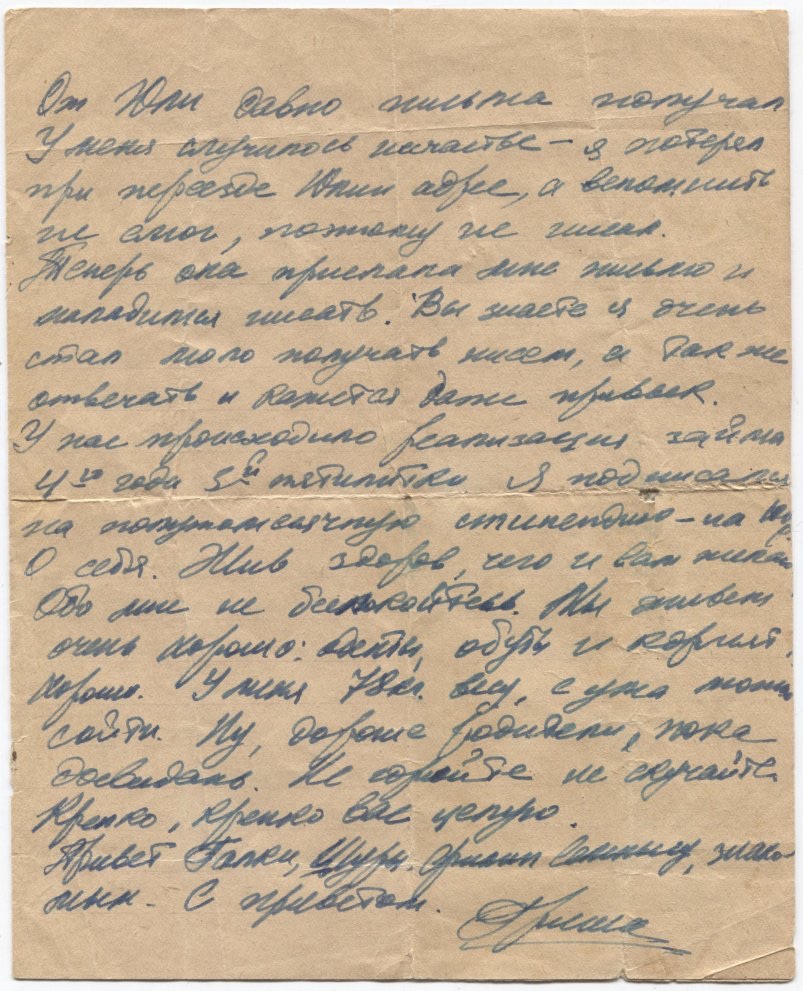 От Юли давно письма получал
У меня случилось несчастье - я потерял
при переезде Юлии адрес, а вспомнить
не смог, поэтому не писал.
Теперь она прислала мне письмо и
наладился писать. Вы знаете я очень
стал мало получать писем, а так же
отвечать и кажется даже привык.
У нас происходило реализация займа
4го года 3ей пятилетки Я подписался
на полуторамесячную стипендию - на
О себе. Жив здоров, чего и вам желаю
Обо мне не беспокойтесь. Мы живем
очень хорошо: одеты, обуты и кормят
хорошо. У меня 78 кг. весу, с ума можно
сойти. Ну, дорогие родители, пока
досвидань. Не горюйте не скучайте.
Крепко, крепко вас целую.
Привет Галки, Шуры, знако-
мым. С приветом.
Гриша